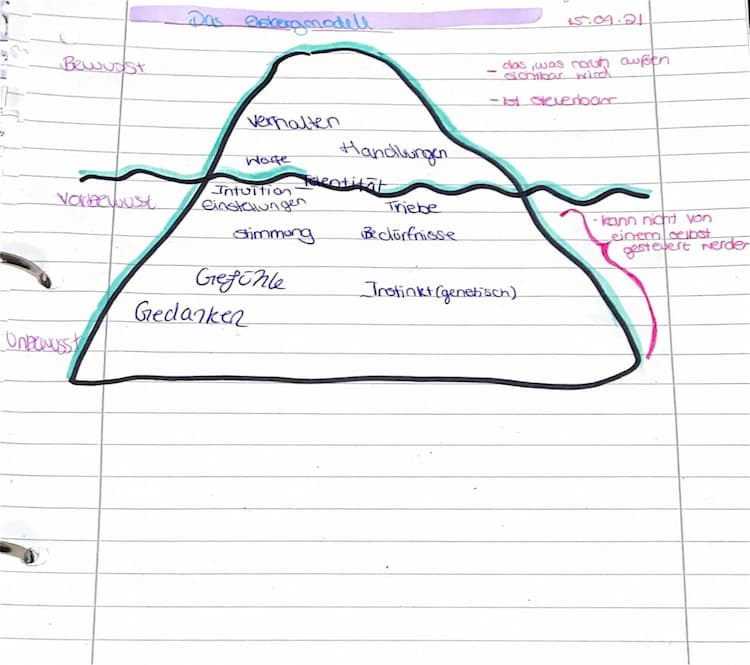 Das Eisbergmodell
15.09.21
Bewusst
- das, was nach außen
sichtbar wird
- ist steuerbar
Verhalten
Handlungen
Worte
Identität
Vorbewusst
Intuition
einstellungen
Triebe
Stimmung
Bedürfnisse
- kann nicht von
einem selbst
gesteuert werden
Gefühle
Instinkt (genetisch)
Gedanken
Unbewusst